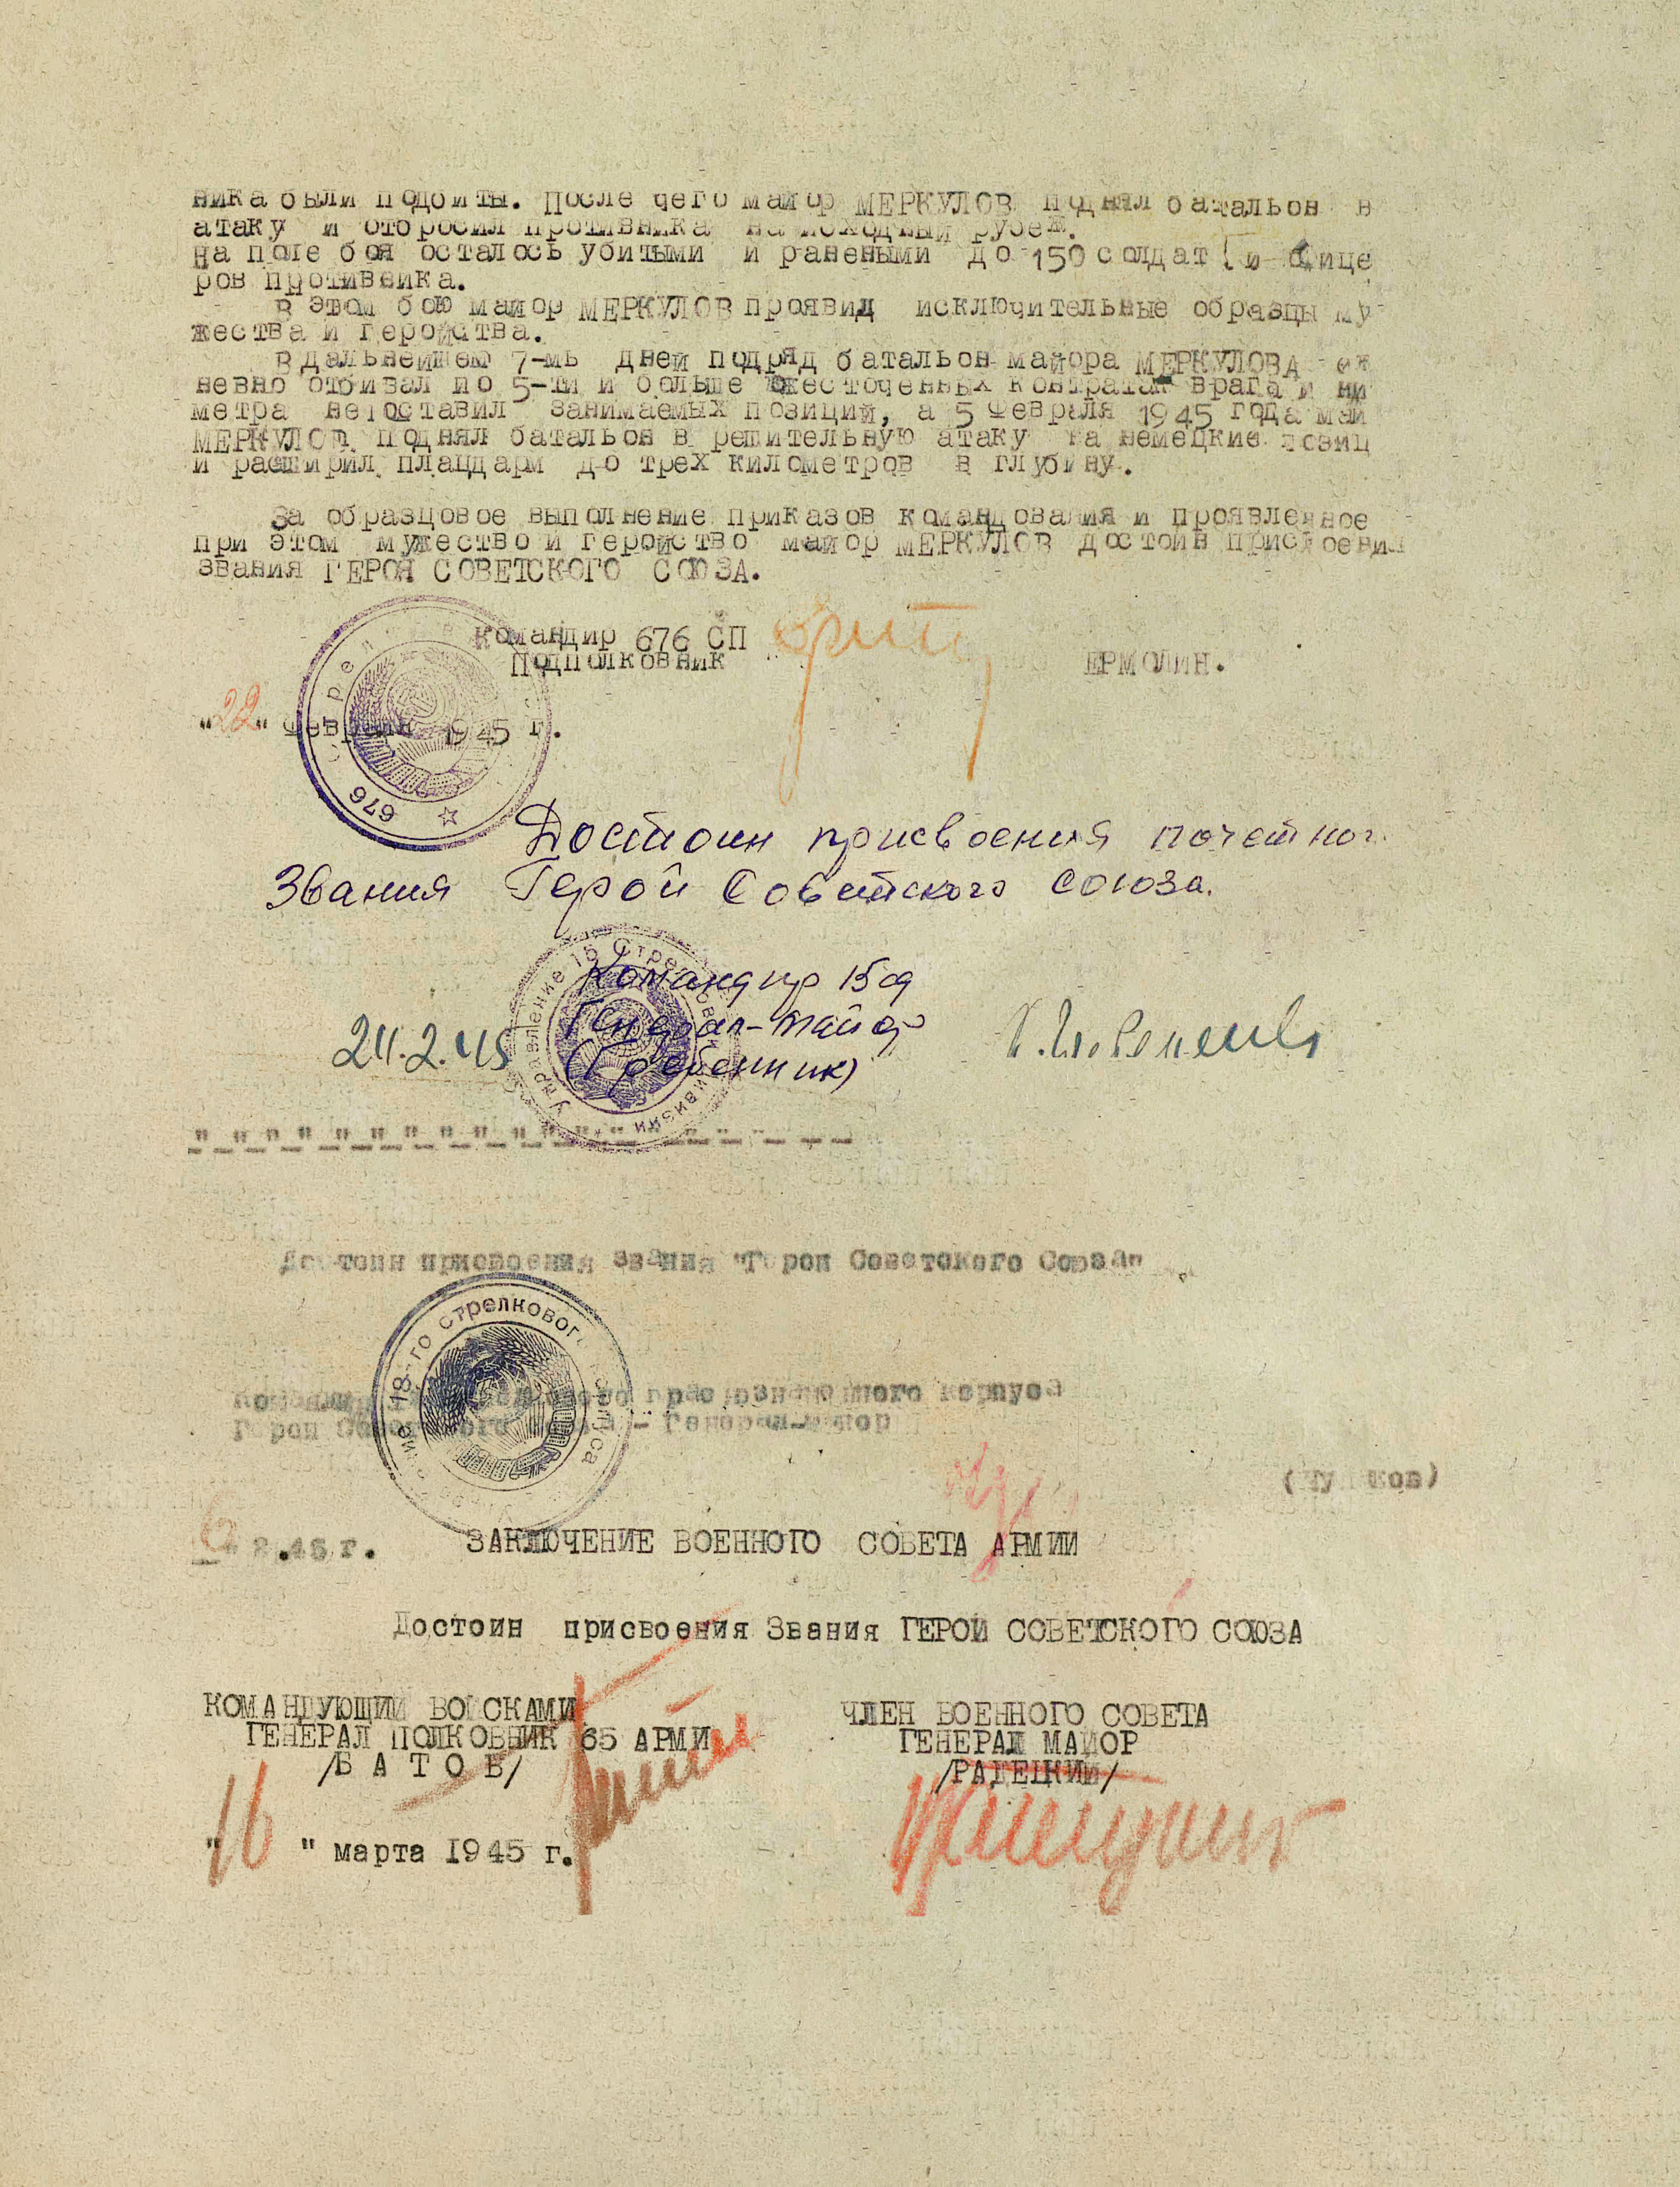 ника были подбиты. После чего майор МЕРКУЛОВ поднял батальон в
атаку и отбросил противника на исходный рубеж.
На поле боя осталось убитыми и ранеными до 150 солдат и фице
ров противника.
В этом бою майор МЕРКУЛОВ проявид исключительные образцы му
жества и геройства.
В дальнейшем 7-мь дней подряд батальон майора МЕРКУЛОВА
невно отбивал по 5-ти и больше ожесточенных контратак врага и ни
метра не оставил занимаемых позиций, а 5 февраля 1945 года май
МЕРКУЛОВ поднял батальон в решительную атаку на немецкие позиц
и расширил плацдарм до трех километров в глубину.
За образцовое выполнение приказов командования и проявленное
при этом мужество и геройство майор МЕРКУЛОВ достоин присвоения
звания ГЕРОЯ СОВЕТСКОГО СОЮЗА.
Командир 676 СП
Подполковник ЕРМОЛИН.
"22" февраля 1945 г.
676
Достоин присвоения почетног
Звания Герой Советского Союза.
Командир 15 сд
Генерал-майор
(Гребенник)
24.2.45
Достоин присвоения звания "Герой Советского Союза"
18-го стрелкового корпуса
Командир краснознаменного корпуса
Герой Советского Союза - Генерал-майор
2.45 г.
ЗАКЛЮЧЕНИЕ ВОЕННОГО СОВЕТА АРМИИ
Достоин присвоения Звания ГЕРОЙ СОВЕТСКОГО СОЮЗА
КОМАНДУЮЩИЙ ВОЙСКАМИ
ГЕНЕРАЛ ПОЛКОВНИК 65 АРМИ
/Б А Т О В/
ЧЛЕН ВОЕННОГО СОВЕТА
ГЕНЕРАЛ МАЙОР
/РАДЕЦКИЙ/
"16" марта 1945 г.